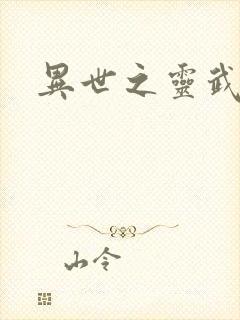 異世之靈武
山令